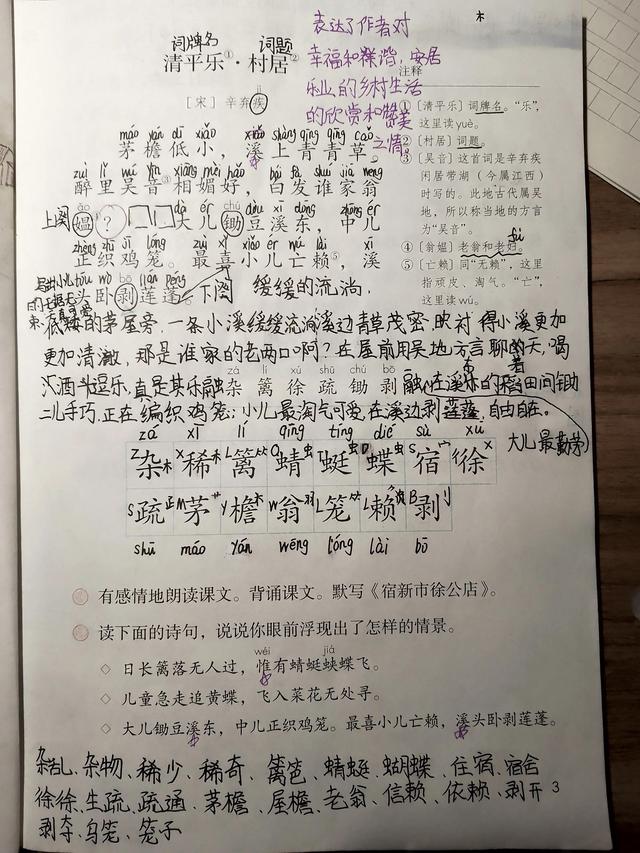 木
词牌名 词题
清平乐①·村居②
表达了作者对
幸福和谐,安居
乐业的乡村生活
的欣赏和赞美
之情。
jí
[宋] 辛弃疾
máo yán dī xiǎo xī shàng qīng qīng cǎo
茅檐低小,溪上青青草。
zuì lǐ wú yīn xiāng mèi hǎo bái fà shuí jiā wēng
醉里吴音③相媚好,白发谁家翁
上阕
ǎo dà ér chú dòu xī dōng zhōng ér
媪④?大儿锄豆溪东,中儿
zhèng zhī jī lóng zuì xǐ xiǎo ér wú lài xī
正织鸡笼。最喜小儿亡赖⑤,溪
tóu wò bō lián péng
头卧剥莲蓬。
下阕
缓缓的流淌.
注释
① [清平乐] 词牌名。“乐”,
这里读yuè。
② [村居] 词题。
③ [吴音] 这首词是辛弃疾
闲居带湖(今属江西)
时写的。此地古代属吴
地,所以称当地的方言
为“吴音”。
④ [翁媪] 老翁和老妇。
fù
⑤ [亡赖] 同“无赖”,这里
指顽皮、淘气。“亡”,
这里读wú。
低矮的茅屋旁.一条小溪缓缓流淌溪边青草茂密,映衬得小溪更加
更加清澈,那是谁家的老两口啊?在屋前用吴地方言聊着天,喝
汇酒斗逗乐.真是其乐融融
zá lí xú shū chú bō
杂 篱 徐 疏 锄 剥
在溪东的稻田间锄
二儿手巧.正在编织鸡笼;小儿最淘气可爱.在溪边剥莲蓬.自由自在。
大儿最勤劳
zá xī lí qīng tíng dié sù xú
杂 稀 篱 蜻 蜓 蝶 宿 徐
疏 茅 檐 翁 笼 赖 剥
shū máo yán wēng lóng lài bō
有感情地朗读课文。背诵课文。默写《宿新市徐公店》。
读下面的诗句,说说你眼前浮现出了怎样的情景。
wéi jiá
◇ 日长篱落无人过,惟有蜻蜓蛱蝶飞。
◇ 儿童急走追黄蝶,飞入菜花无处寻。
◇ 大儿锄豆溪东,中儿正织鸡笼。最喜小儿亡赖,溪头卧剥莲蓬。
杂乱、杂物、稀少、稀奇、篱笆、蜻蜓、蝴蝶、住宿、宿舍
徐徐、生疏、疏通、茅檐、屋檐、老翁、信赖、依赖、剥开
剥夺、鸟笼、笼子
3